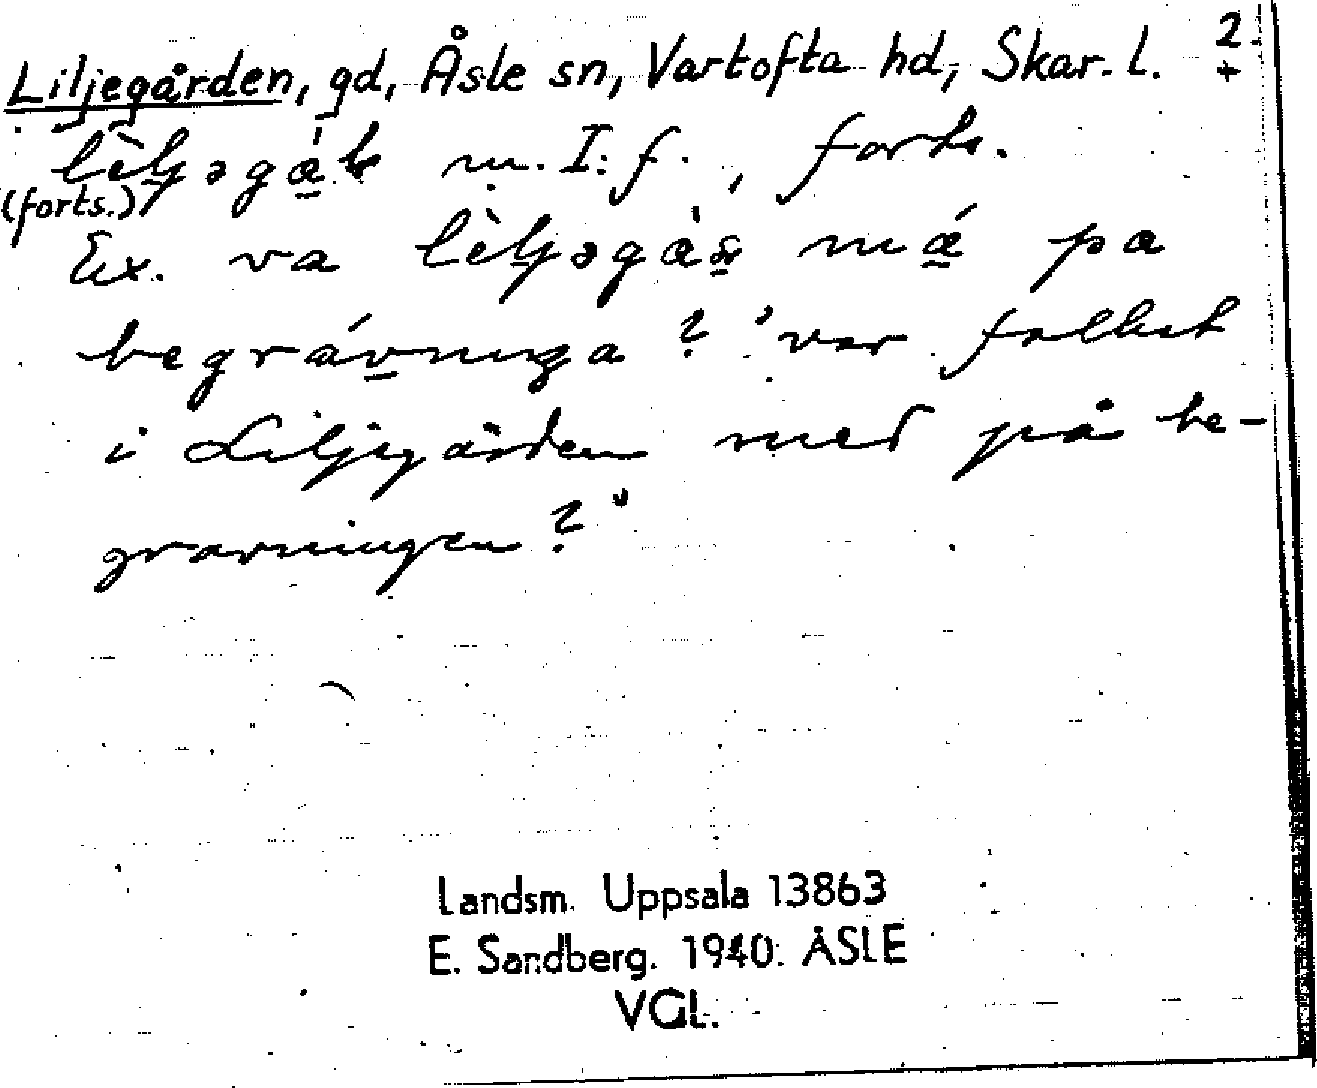 Liljegården, gd, Åsle sn, Vartofta hd, Skar. l. 2
+
m. I: f., forts.
(forts.)
Ex. va lèljəgàṣ mǽ pa
begrávniŋa? 'var folket
i Liljegården med på be-
gravningen?'
Landsm. Uppsala 13863
E. Sandberg. 1940. ÅSLE
VGL.